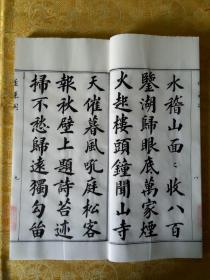 水稽山面〻收八百
鑒湖歸眼底萬家煙
火起樓頭鐘聞山寺
天催暮風吼庭松客
報秋壁上題詩苔迹
掃不愁歸遠獨勾留
九